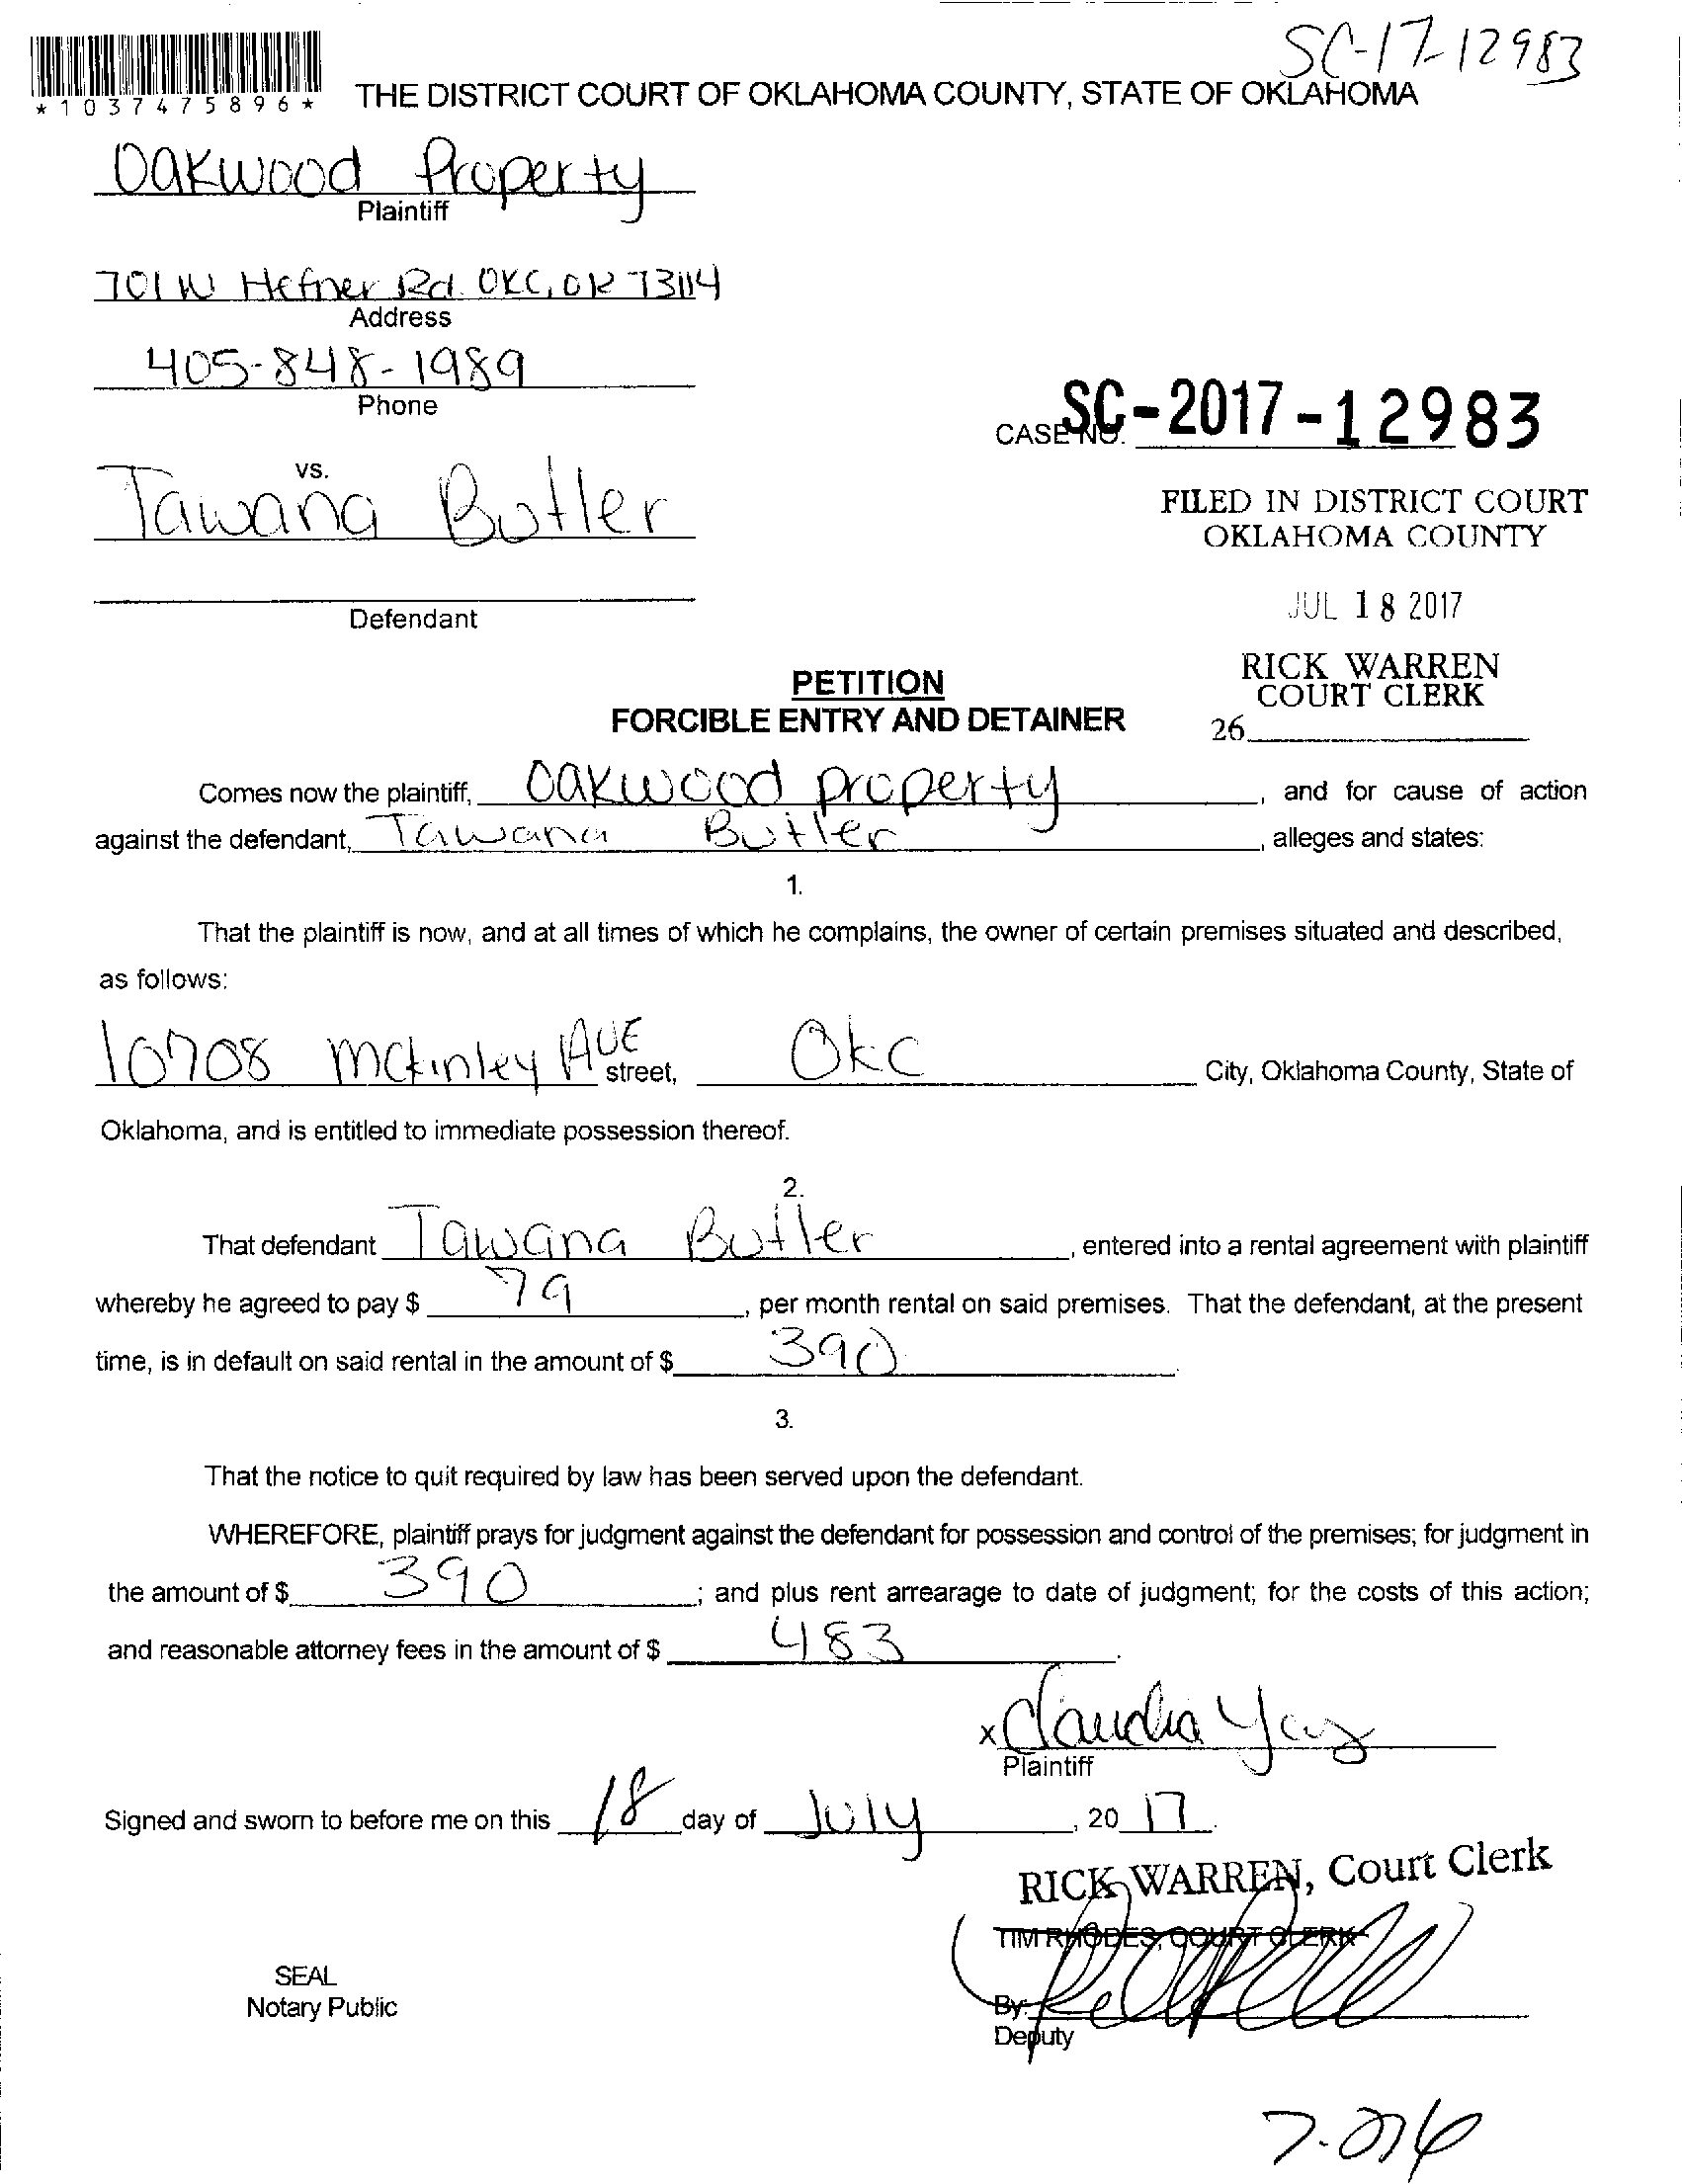 SC-17-12983
*1037475896*
THE DISTRICT COURT OF OKLAHOMA COUNTY, STATE OF OKLAHOMA
Oakwood Property
Plaintiff
701 W Hefner Rd. OKC, OK 73114
Address
405-848-1989
Phone
CASE NO. SC-2017-12983
vs.
Tawana Butler
FILED IN DISTRICT COURT
OKLAHOMA COUNTY
Defendant
JUL 18 2017
RICK WARREN
COURT CLERK
26
PETITION
FORCIBLE ENTRY AND DETAINER
Comes now the plaintiff, Oakwood property, and for cause of action
against the defendant, Tawana Butler, alleges and states:
1.
That the plaintiff is now, and at all times of which he complains, the owner of certain premises situated and described,
as follows:
10708 Mckinley AVE street, OKC City, Oklahoma County, State of
Oklahoma, and is entitled to immediate possession thereof.
2.
That defendant Tawana Butler, entered into a rental agreement with plaintiff
whereby he agreed to pay $ 79, per month rental on said premises. That the defendant, at the present
time, is in default on said rental in the amount of $ 390.
3.
That the notice to quit required by law has been served upon the defendant.
WHEREFORE, plaintiff prays for judgment against the defendant for possession and control of the premises; for judgment in
the amount of $ 390; and plus rent arrearage to date of judgment; for the costs of this action;
and reasonable attorney fees in the amount of $ 483.
x Claudia
Plaintiff
Signed and sworn to before me on this 18 day of July, 20 17.
RICK WARREN, Court Clerk
TIM RHODES, COURT CLERK
SEAL
Notary Public
By:
Deputy